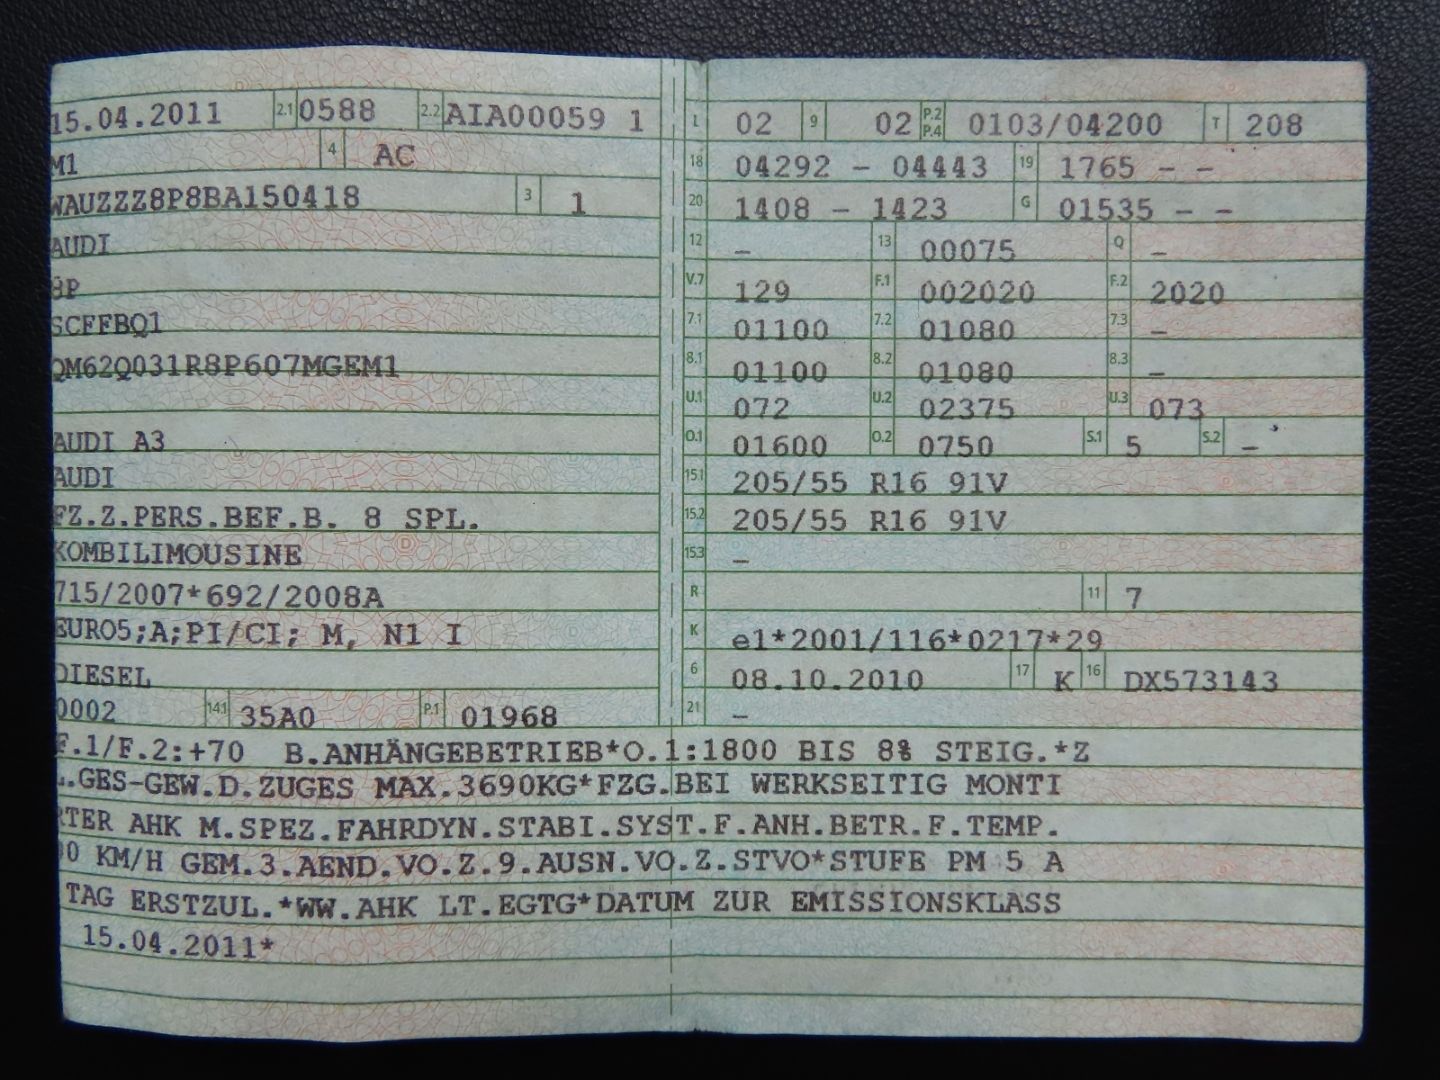 15.04.2011 2.1 0588 2.2 AIA00059 1
M1 4 AC
WAUZZZ8P8BA150418 3 1
AUDI
8P
SCFFBQ1
QM62Q031R8P607MGEM1
AUDI A3
AUDI
FZ.Z.PERS.BEF.B. 8 SPL.
KOMBILIMOUSINE
715/2007*692/2008A
EURO5;A;PI/CI; M, N1 I
DIESEL
0002 14.1 35A0 P.1 01968
L 02 9 02 P.2 P.4 0103/04200 T 208
18 04292 - 04443 19 1765 - -
20 1408 - 1423 G 01535 - -
12 - 13 00075 Q -
V.7 129 F.1 002020 F.2 2020
7.1 01100 7.2 01080 7.3 -
8.1 01100 8.2 01080 8.3 -
U.1 072 U.2 02375 U.3 073
O.1 01600 O.2 0750 S.1 5 S.2 -
15.1 205/55 R16 91V
15.2 205/55 R16 91V
15.3 -
R 11 7
K e1*2001/116*0217*29
6 08.10.2010 17 K 16 DX573143
21 -
F.1/F.2:+70 B.ANHÄNGEBETRIEB*O.1:1800 BIS 8% STEIG.*Z
L.GES-GEW.D.ZUGES MAX.3690KG*FZG.BEI WERKSEITIG MONTI
RTER AHK M.SPEZ.FAHRDYN.STABI.SYST.F.ANH.BETR.F.TEMP.
00 KM/H GEM.3.AEND.VO.Z.9.AUSN.VO.Z.STVO*STUFE PM 5 A
TAG ERSTZUL.*WW.AHK LT.EGTG*DATUM ZUR EMISSIONSKLASS
15.04.2011*